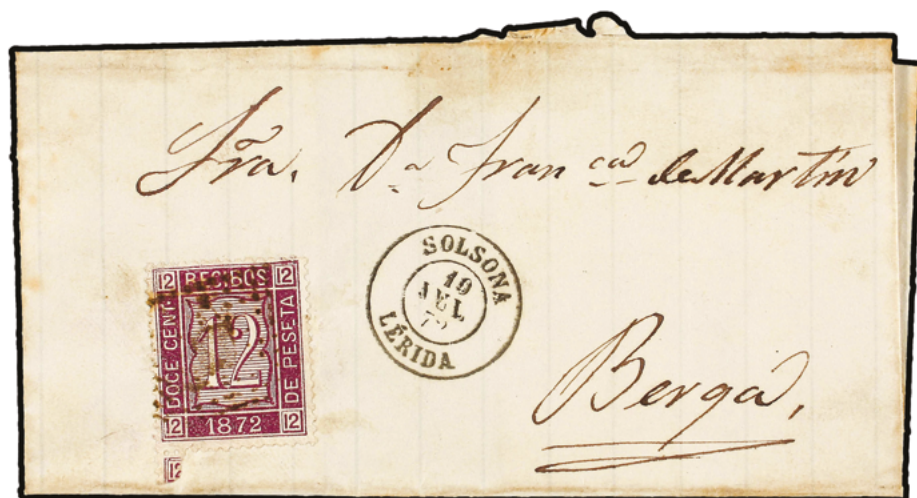 Sra. Da Francca de Martin
SOLSONA
19
JUL
72
LÉRIDA
12 RECIBOS 12
DOCE CENT
12
DE PESETA
12 1872 12
12
Berga,